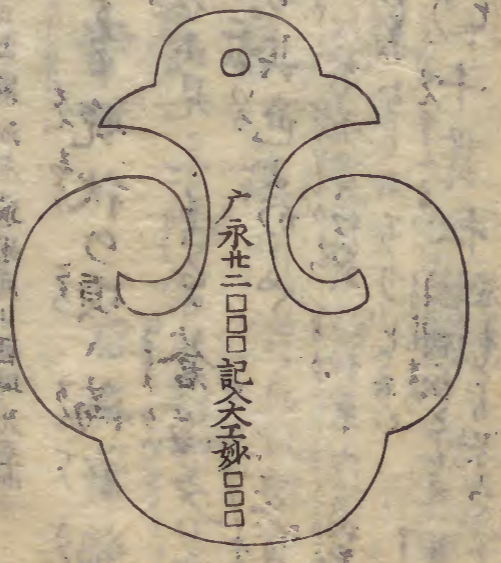 广永廿二□□□記入大工妙□□□